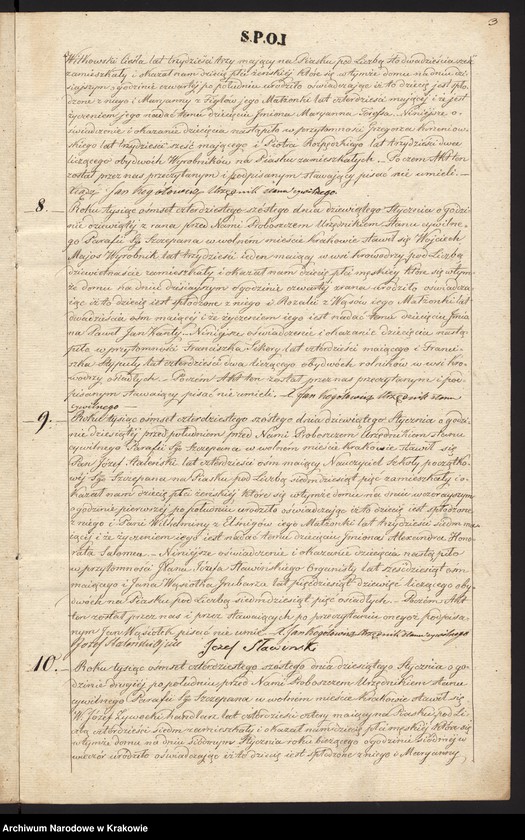 3
S.P.O.J
Witkowski Cieśla lat trzydzieści trzy mający na Piasku pod Liczbą Sto dwadzieścia
zamieszkały – okazał nam dziecię płci żeńskiej które się w tymże domu na dniu dzi
siejszym o godzinie czwartej po południu urodziło oświadczając iż to dziecię jest spło
dzone z niego i Maryanny z jego Małżonki lat czterdzieści mającej i że jest
życzeniem jego nadać temu dziecięciu Imiona Maryanna Teressa. Niniejsze o
świadczenie i okazanie dziecięcia nastąpiło w przytomności Grzegorza
skiego lat trzydzieści sześć mającego i Piotra lat trzydzieści dwa
liczącego obydwóch Wyrobników na Piasku zamieszkałych – Poczem Akt ten
został przez nas przeczytanym i podpisanym stawający pisać nie umieli. –
X Jan Rogólowicz Urzędnik stanu cywilnego
8. Roku tysiąc ośmset czterdziestego szóstego dnia dziewiątego Stycznia o godzi
nie dziewiąty z rana przed Nami Proboszczem Urzędnikiem Stanu cywilne
go Parafii Sgo Szczepana w wolnem mieście Krakowie stawił się Wojciech
Majos Wyrobnik lat trzydzieści jeden mający w wsi Krowodrzy pod Liczbą
dziewiętnaście zamieszkały, i okazał nam dziecię płci męskiej które się w tym
że domu na dniu dzisiejszym o godzinie czwarty zrana urodziło oświadcza
jąc iż to dziecię jest spłodzone z niego i Rozalii z Wąsów jego Małżonki lat
dwadzieścia ośm mającej i że życzeniem jego jest nadać temu dziecięciu Jmio
na Paweł Jan Kanty – Niniejsze oświadczenie i okazanie dziecięcia nastą
piło w przytomności Franciszka Sikory lat czterdzieści mającego i Franci
szka Stypuły lat czterdzieści dwa liczącego obydwóch rolników w wsi Kro
wodrzy osiadłych – Poczem Akt ten został przez nas przeczytanym i pod
pisanym stawający pisać nie umieli. – X Jan Rogólowicz Urzędnik stanu
cywilnego –
9. Roku tysiąc ośmset czterdziestego szóstego dnia dziewiątego Stycznia o godzi
nie dziesiątej przed południem przed Nami Proboszczem Urzędnikiem Stanu
cywilnego Parafii Sgo Szczepana w wolnem mieście Krakowie stawił się
Pan Józef lat czterdzieści ośm mający Nauczyciel Szkoły początko
wéj Sgo Szczepana na Piasku pod Liczbą siedmdziesiąt pięć zamieszkały i o
kazał nam dziecię płci żeńskiej które się w tymże domu na dniu wczorajszym
o godzinie pierwszej po południu urodziło oświadczając iż to dziecię jest spłodzone
z niego i Pani Wilhelminy z jego Małżonki lat trzydzieści siedm ma
jącej i że życzeniem jego jest nadać temu dziecięciu Jmiona Alexandra Hono
rata Salomea. – Niniejsze oświadczenie i okazanie dziecięcia nastąpiło
w przytomności Pana Józefa Stawińskiego Organisty lat sześćdziesiąt ośm
mającego i Jana Wąsiołka Grabarza lat pięćdziesiąt dziewięć liczącego oby
dwóch na Piasku pod Liczbą siedmdziesiąt pięć osiadłych – Poczem Akt
ten został przez nas i przez stawających po przeczytaniu onegoż podpisa
nym Jan Wąsiołek pisać nie umié. – X Jan Rogólowicz Urzędnik stanu cywilnego
Józef Józef Stawinski
10. Roku tysiąc ośmset czterdziestego szóstego dnia dziesiątego Stycznia o go
dzinie drugiéj po południu przed Nami Proboszczem Urzędnikiem Stanu
cywilnego Parafii Sgo Szczepana w wolnem mieście Krakowie stawił się
W. Józef Żywocki handlarz lat czterdzieści cztery mający na Piasku pod Li
czbą czterdzieści siedm zamieszkały i okazał nam dziecię płci męskiej które się
w tymże domu na dniu siódmym Stycznia roku bieżącego o godzinie siódméj w
wieczór urodziło oświadczając iż to dziecię jest spłodzone z niego i Maryanny
Archiwum Narodowe w Krakowie